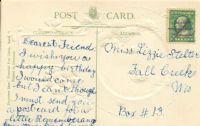 POST CARD.
Dearest Friend:
I wish you a
happy birthday
I would come
but I can't though
I must send you
postcard for a
little
Miss Lizzie Stelter
Fall Creek
Wis
Box # 19.